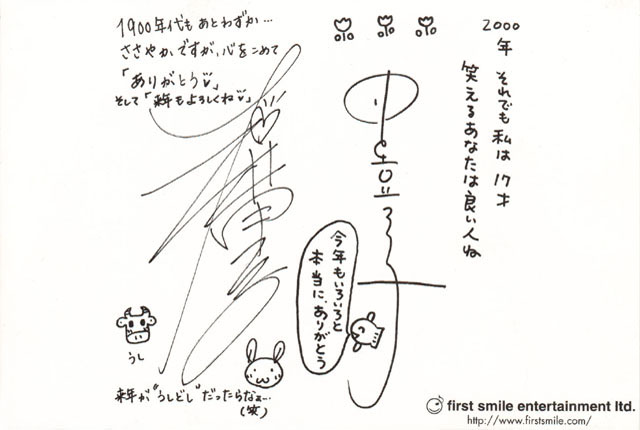 1900年代もあとわずか…
ささやかですが、心をこめて
「ありがとう♡」
そして「来年もよろしくね♡」
うし
来年が"うしどし"だったらなぁ…
(笑)
2000
年 それでも私は17才
笑えるあなたは良い人ね
今年もいろいろと
本当に、ありがとう
first smile entertainment ltd.
http://www.firstsmile.com/